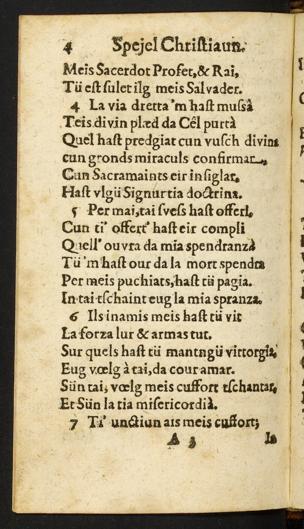 4 Spejel Christiaun.
Meis Sacerdot Profet, & Rai,
Tü est sulet ilg meis Salvader.
4 La via dretta 'm hast mussà
Teis divin plæd da Cêl purtà
Quel hast predgiat cun vusch divina
cun gronds miraculs confirmar.
Cun Sacramaints eir insiglar,
Hast vlgü Signur tia doctrina.
5 Per mai, tai svess hast offert,
Cun ti' offert' hast eir compli
Quell' ouvra da mia spendranzà
Tü 'm hast our da la mort spendra
Per meis puchiats, hast tü pagia.
In tai tschaint eug la mia spranza.
6 Ils inamis meis hast tü vit
La forza lur & armas tut.
Sur quels hast tü mantngü victorgia,
Eug vœlg à tai, da cour amar.
Sün tai, vœlg meis cuffort tschantar,
Et Sün la tia misericordià.
7 Ti' unctiun ais meis cuffort;
A 3 In